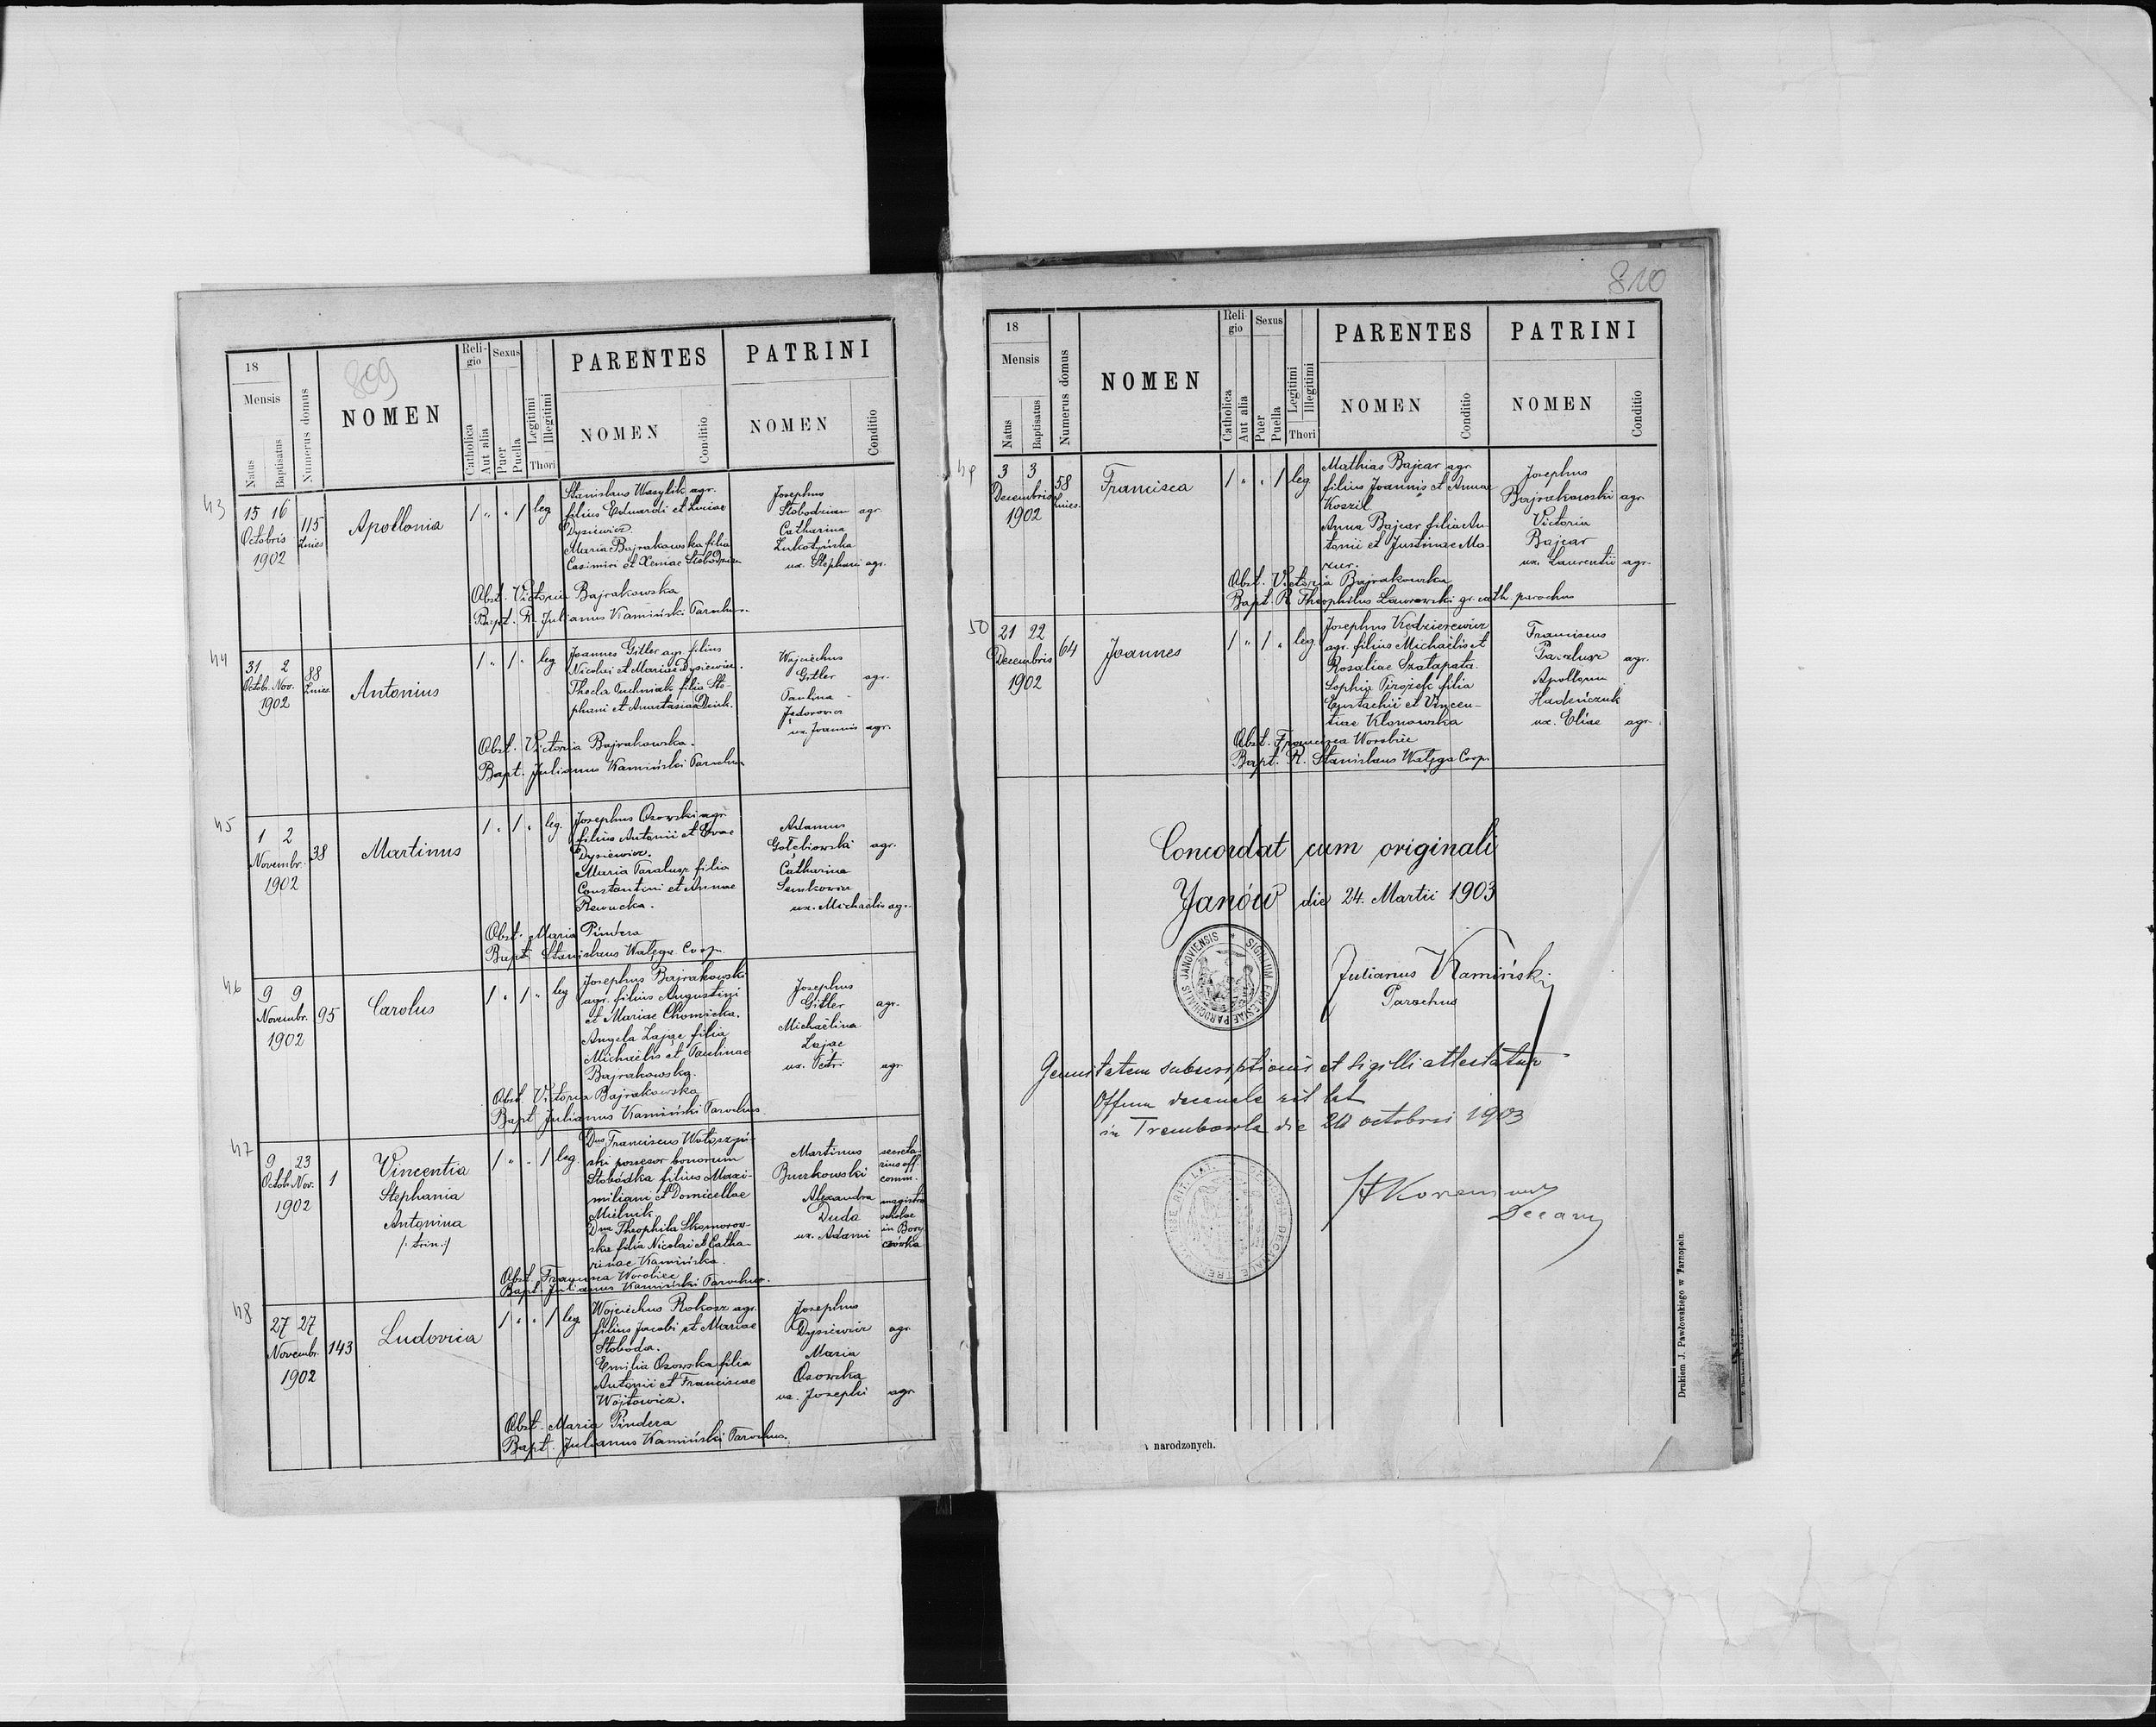 809
18
Mensis
Natus
Baptisatus
Numerus domus
NOMEN
Reli-
gio
Catholica
Aut alia
Sexus
Puer
Puella
Legitimi
Illegitimi
Thori
PARENTES
NOMEN
Conditio
PATRINI
NOMEN
Conditio
43
15 16
Octobris
1902
115
Znies.
Apollonia
1 " " 1 leg
Stanislaus Wasylik agr.
filius Eduardi et Luciae
Dysiewicz
Maria Bajrakowska filia
Casimiri et Xeniae Słobodzian
Josephus
Słobodzian agr.
Catharina
Zukotyńska
ux. Stephani agr.
Obst. Victoria Bajrakowska
Bapt. R. Julianus Kamiński Parochus.
44
31 2
Octobr. Nov.
1902
88
Znies.
Antonius
1 " 1 " leg
Joannes Gitler agr. filius
Nicolai et Mariae Dysiewicz.
Thecla Puchniak filia Ste-
phani et Anastasiae Dziuk.
Wojciechus
Gitler agr.
Paulina
Jędorowicz
ux. Joannis agr.
Obst. Victoria Bajrakowska.
Bapt. Julianus Kamiński Parochus
45
1 2
Novembr.
1902
38
Martinus
1 " 1 " leg.
Josephus Osowski agr.
filius Antonii et Evae
Dysiewicz.
Maria Taraluxz filia
Constantini et Annae
Rewucka.
Adamus
Gołębiowski agr.
Catharina
Senkowicz
ux. Michaëlis agr.
Obst. Maria Pindera
Bapt. Stanislaus Wałęga Coop.
46
9 9
Novembr.
1902
95
Carolus
1 " 1 " leg
Josephus Bajrakowski
agr. filius Augustini
et Mariae Chomicka.
Angela Zając filia
Michaëlis et Paulinae
Bajrakowska.
Josephus
Gitler agr.
Michaëlina
Zając
ux. Petri agr.
Obst. Victoria Bajrakowska
Bapt. Julianus Kamiński Parochus
47
9 23
Octob. Nov.
1902
1
Vincentia
Stephania
Antonina
/: trin :/
1 " " 1 leg.
Dnus Franciscus Wołoszyń-
ski possesor bonorum
Słobódka filius Maxi-
miliani et Domicellae
Mielnik
Dna Theophila Skomorow-
ska filia Nicolai et Catha-
rinae Kamińska.
Martinus
Burkowski
secreta-
rius off.
comm.
Alexandra
Duda
ux. Adami
magistra
scholae
in Bory-
czówka
Obst. Francisca Worobiec
Bapt. Julianus Kamiński Parochus.
48
27 27
Novembr.
1902
143
Ludovica
1 " " 1 leg
Wojciechus Rokosz agr.
filius Jacobi et Mariae
Słoboda.
Emilia Osowska filia
Antonii et Franciscae
Wójtowicz.
Josephus
Dysiewicz agr
Maria
Osowska
ux. Josephi agr
Obst. Maria Pindera
Bapt. Julianus Kamiński Parochus.
810
18
Mensis
Natus
Baptisatus
Numerus domus
NOMEN
Reli
gio
Catholica
Aut alia
Sexus
Puer
Puella
Legitimi
Illegitimi
Thori
PARENTES
NOMEN
Conditio
PATRINI
NOMEN
Conditio
49
3 3
Decembris
1902
58
Znies.
Francisca
1 " " 1 leg
Mathias Bajcar agr
filius Joannis et Annae
Koszil
Anna Bajcar filia An-
tonii et Justinae Ma-
zur.
Josephus
Bajrakowski agr
Victoria
Bajcar
ux. Laurentii agr.
Obst. Victoria Bajrakowska
Bapt. R. Theophilus Laworowski gr. cath. parochus
50
21 22
Decembris
1902
64
Joannes
1 " 1 " leg
Josephus Kędzierewicz
agr. filius Michaëlis et
Rosaliae Szałapata.
Sophia Pirożek filia
Eustachii et Vincen-
tiae Klonowska
Franciscus
agr.
Apollonia
Hadeńczuk
ux. Eliae agr.
Obst. Francisca Worobiec
Bapt. R. Stanislaus Wałęga Coop.
Concordat cum originali
Janów die 24. Martii 1903
SIGILLUM ECCLESIAE PAROCHIALIS JANOVIENSIS
Julianus Kamiński
Parochus
Genuitatem subscriptionis et sigilli attestatur
Officium decanale rit lat
in Trembowla die 20 octobris 1903
Decanus
Drukiem J. Pawłowskiego w Tarnopolu.
narodzonych.